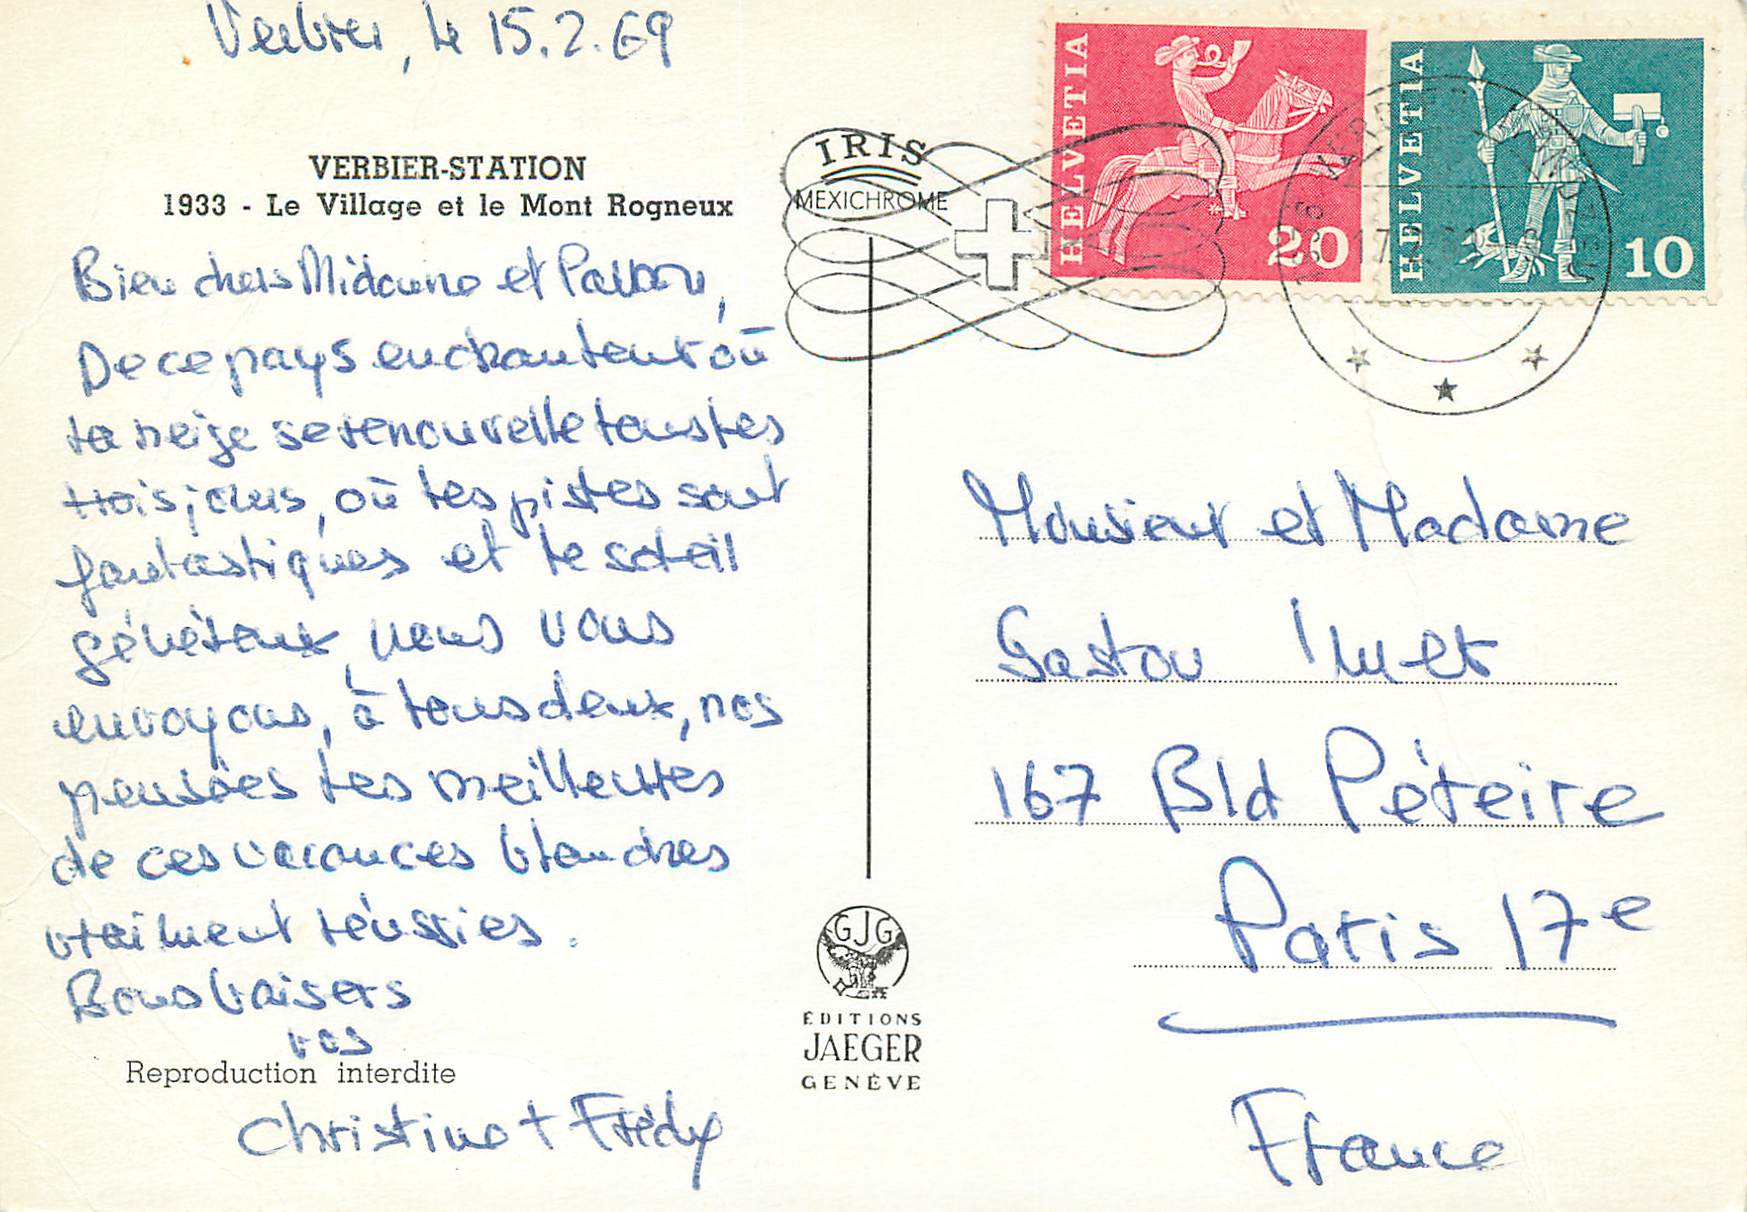 Verbier, le 15.2.69
VERBIER-STATION
1933 - Le Village et le Mont Rogneux
Bien chers Midoune et
De ce pays enchanteur où
la neige se renouvelle tous les
trois jours, où les pistes sont
fantastiques et le soleil
généreux, nous vous
envoyons, à tous deux, nos
pensées les meilleures
de ces vacances blanches
vraiment réussies.
Bons baisers
vos
Reproduction interdite
Christine + Frédy
IRIS
MEXICHROME
HELVETIA
20
HELVETIA
10
1936 VERBIER
Monsieur et Madame
Gaston
167 Bld Péreire
Paris 17e
France
GJG
ÉDITIONS
JAEGER
GENÈVE